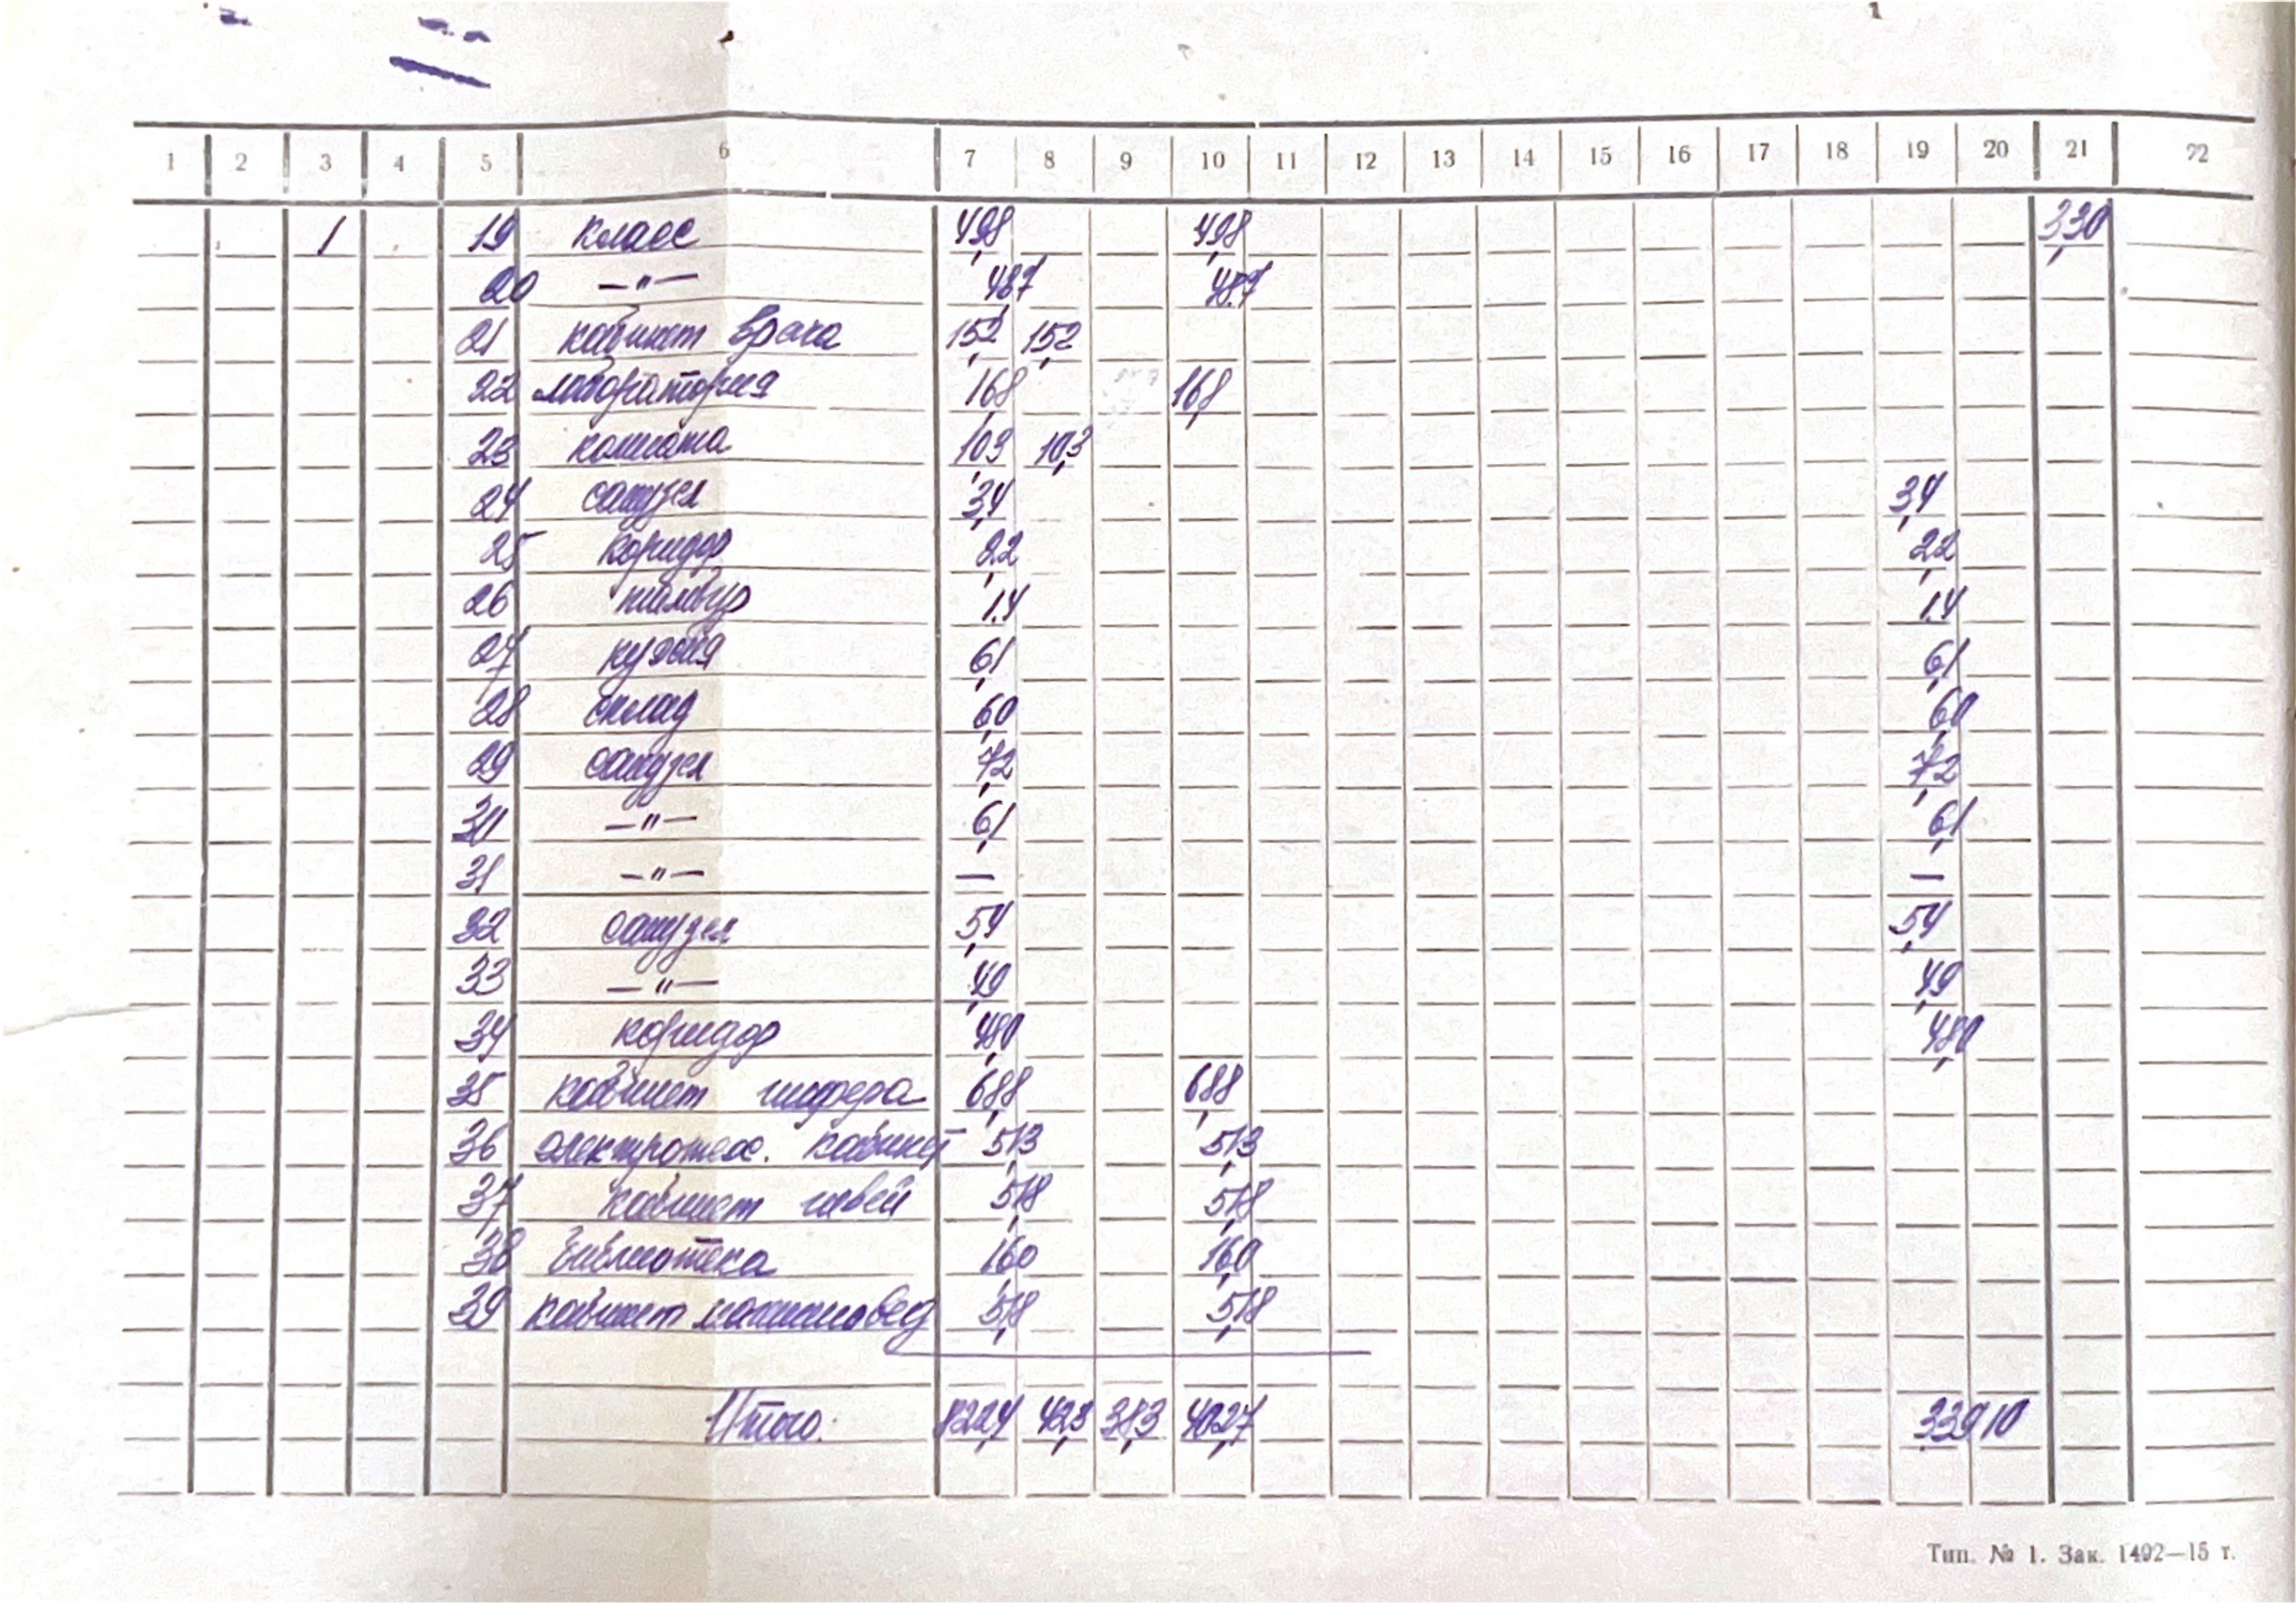 1 2 3 4 5 6 7 8 9 10 11 12 13 14 15 16 17 18 19 20 21 22
1 19 класс 49,8 49,8 3,30
20 —"— 48,7 48,7
21 кабинет врача 15,2 15,2
22 лаборатория 16,8 16,8
23 комната 10,3 10,3
24 санузел 3,4 3,4
25 коридор 2,2 2,2
26 тамбур 1,4 1,4
27 кухня 6,1 6,1
28 склад 6,0 6,0
29 санузел 7,2 7,2
30 —"— 6,1 6,1
31 —"— — —
32 санузел 5,4 5,4
33 —"— 4,9 4,9
34 коридор 48,0 48,0
35 кабинет шофера 68,8 68,8
36 электротех. кабинет 51,3 51,3
37 кабинет швей 51,8 51,8
38 библиотека 16,0 16,0
39 кабинет машиновед 51,8 51,8
Итого: 822,4 42,3 38,3 402,7 339,10
Тип. № 1. Зак. 1492—15 т.